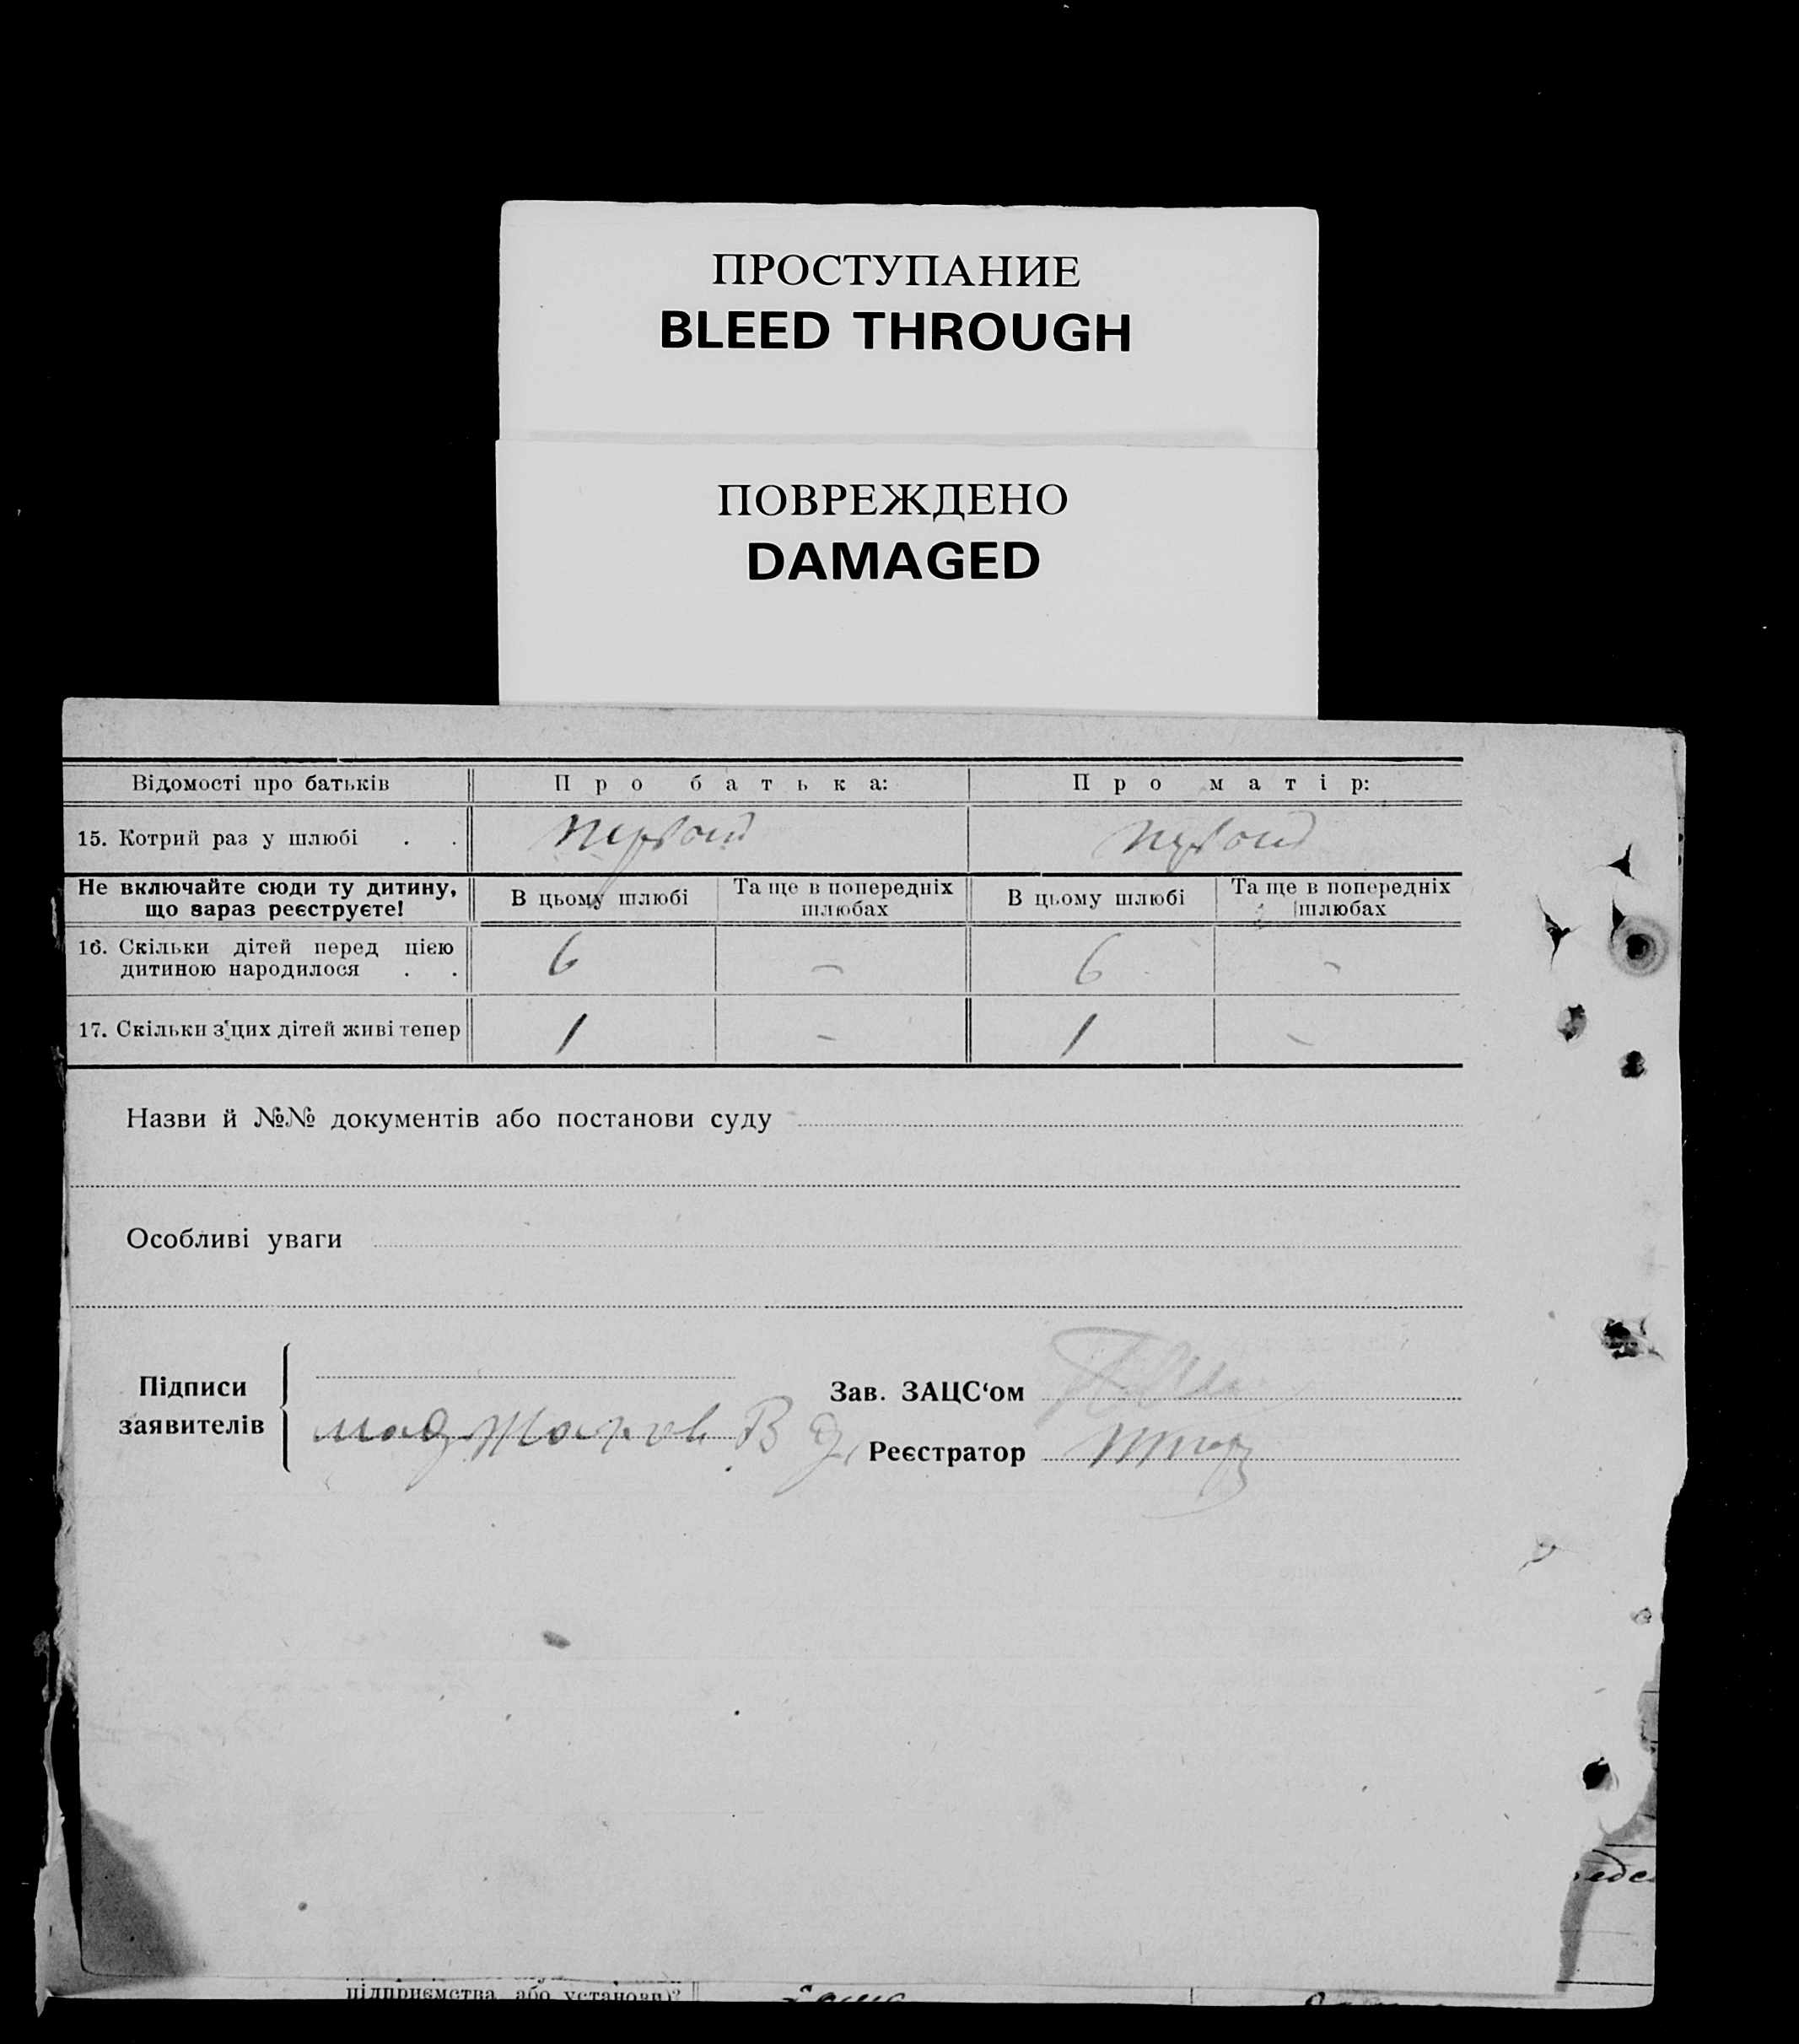 ПРОСТУПАНИЕ
BLEED THROUGH
ПОВРЕЖДЕНО
DAMAGED
Відомості про батьків Про батька: Про матір:
15. Котрий раз у шлюбі . . первои первои
Не включайте сюди ту дитину, що зараз реєструєте! В цьому шлюбі Та ще в попередніх шлюбах В цьому шлюбі Та ще в попередніх шлюбах
16. Скільки дітей перед цією
дитиною народилося . . 6 – 6 –
17. Скільки з цих дітей живі тепер 1 – 1 –
Назви й №№ документів або постанови суду
Особливі уваги
Підписи
заявителів
Маджаров В
Зав. ЗАЦС‘ом
Реєстратор
підприємства або установи)?